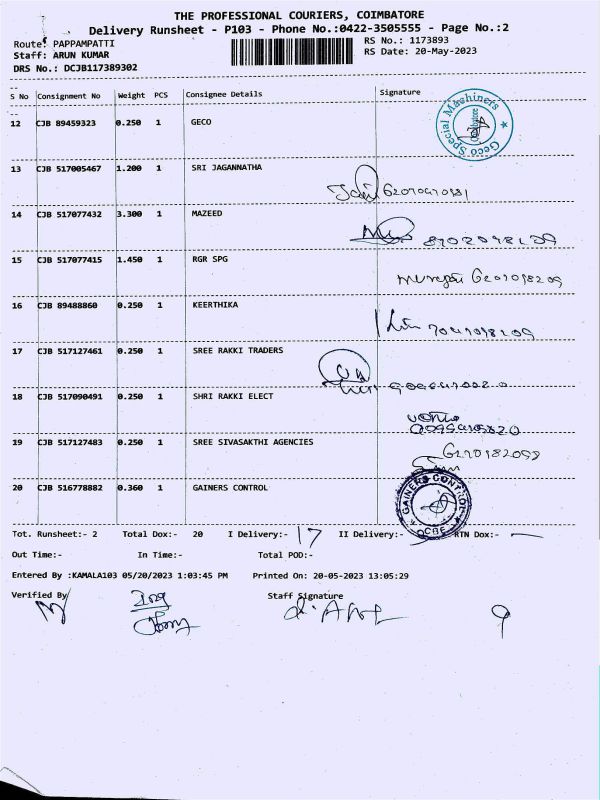 THE PROFESSIONAL COURIERS, COIMBATORE
Delivery Runsheet - P103 - Phone No.:0422-3505555 - Page No.:2
Route: PAPPAMPATTI
RS No.: 1173893
Staff: ARUN KUMAR
RS Date: 20-May-2023
DRS No.: DCJB117389302
S No Consignment No Weight PCS Consignee Details Signature
12 CJB 89459323 0.250 1 GECO
Geco Special Machiners Coimbatore
13 CJB 517005467 1.200 1 SRI JAGANNATHA
14 CJB 517077432 3.300 1 MAZEED
15 CJB 517077415 1.450 1 RGR SPG
16 CJB 89488860 0.250 1 KEERTHIKA
17 CJB 517127461 0.250 1 SREE RAKKI TRADERS
18 CJB 517090491 0.250 1 SHRI RAKKI ELECT
19 CJB 517127483 0.250 1 SREE SIVASAKTHI AGENCIES
20 CJB 516778882 0.360 1 GAINERS CONTROL
GAINERS CONTROL CBE
Tot. Runsheet:- 2 Total Dox:- 20 I Delivery:- 17 II Delivery:- RTN Dox:- -
Out Time:- In Time:- Total POD:-
Entered By :KAMALA103 05/20/2023 1:03:45 PM Printed On: 20-05-2023 13:05:29
Verified By Staff Signature